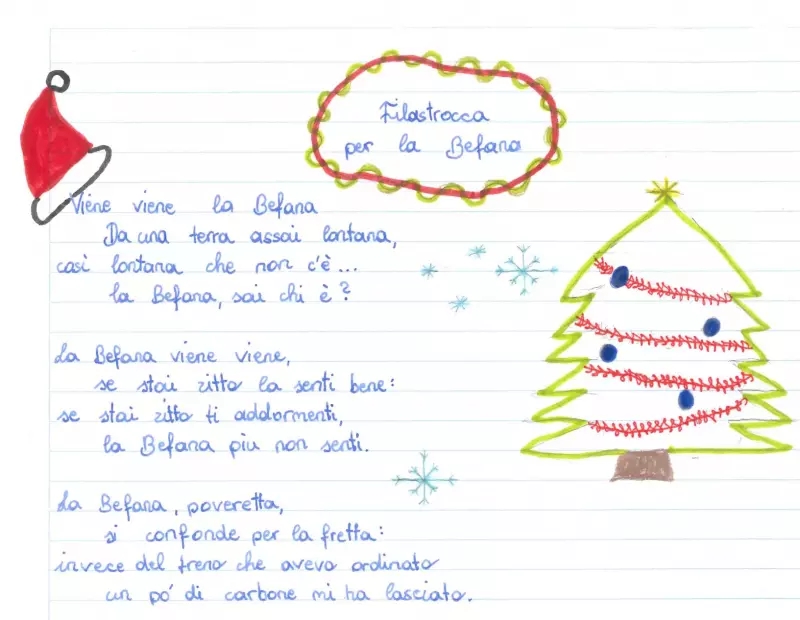 Filastrocca
per la Befana
Viene viene la Befana
Da una terra assai lontana,
così lontana che non c'è...
la Befana, sai chi è?
La Befana viene viene,
se stai zitto la senti bene:
se stai zitto ti addormenti,
la Befana più non senti.
La Befana, poveretta,
si confonde per la fretta:
invece del treno che avevo ordinato
un pó di carbone mi ha lasciato.